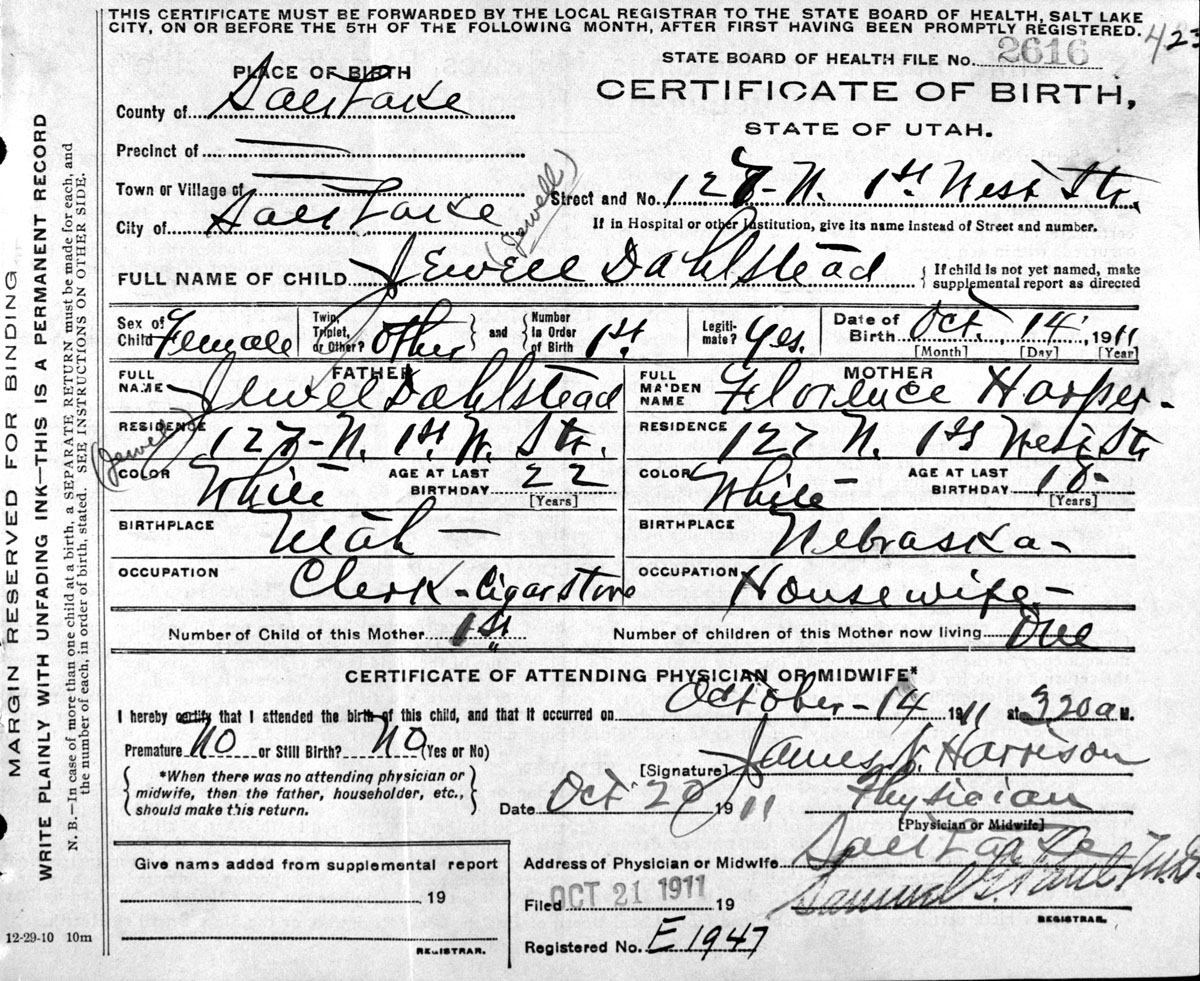 THIS CERTIFICATE MUST BE FORWARDED BY THE LOCAL REGISTRAR TO THE STATE BOARD OF HEALTH, SALT LAKE
CITY, ON OR BEFORE THE 5TH OF THE FOLLOWING MONTH, AFTER FIRST HAVING BEEN PROMPTLY REGISTERED.
423
STATE BOARD OF HEALTH FILE No. 2616
CERTIFICATE OF BIRTH,
STATE OF UTAH.
PLACE OF BIRTH
County of Salt Lake
Precinct of
Town or Village of
City of Salt Lake
Street and No. 127-N. 1st West Str.
If in Hospital or other Institution, give its name instead of Street and number.
(Jewell)
FULL NAME OF CHILD Jewell Dahlstead
{ If child is not yet named, make
supplemental report as directed
Sex of Child Female
Twin, Triplet, or Other? Other } and { Number in Order of Birth 1st.
Legitimate? Yes.
Date of Birth Oct. 14, 1911
[Month] [Day] [Year]
FATHER
FULL NAME Jewel Dahlstead
(Jewell)
RESIDENCE 127-N. 1st. W. Str.
COLOR White AGE AT LAST BIRTHDAY 22
[Years]
BIRTHPLACE Utah
OCCUPATION Clerk - Cigar Store
MOTHER
FULL MAIDEN NAME Florence Harper-
RESIDENCE 127 N. 1st West Str
COLOR White AGE AT LAST BIRTHDAY 18-
[Years]
BIRTHPLACE Nebraska-
OCCUPATION Housewife-
Number of Child of this Mother 1st
Number of children of this Mother now living One
CERTIFICATE OF ATTENDING PHYSICIAN OR MIDWIFE*
I hereby certify that I attended the birth of this child, and that it occurred on October-14 1911 at 320a M.
Premature No or Still Birth? No (Yes or No)
{ *When there was no attending physician or
midwife, then the father, householder, etc.,
should make this return. }
[Signature] James Harrison
Date Oct 20 1911 Physician
[Physician or Midwife]
Give name added from supplemental report
19
REGISTRAR.
Address of Physician or Midwife Salt Lake
Filed OCT 21 1911 19
Samuel G. Paul M.D.
REGISTRAR.
Registered No. E 1947
12-29-10 10m
MARGIN RESERVED FOR BINDING
WRITE PLAINLY WITH UNFADING INK—THIS IS A PERMANENT RECORD
N. B.—In case of more than one child at a birth, a SEPARATE RETURN must be made for each, and
the number of each, in order of birth, stated. SEE INSTRUCTIONS ON OTHER SIDE.